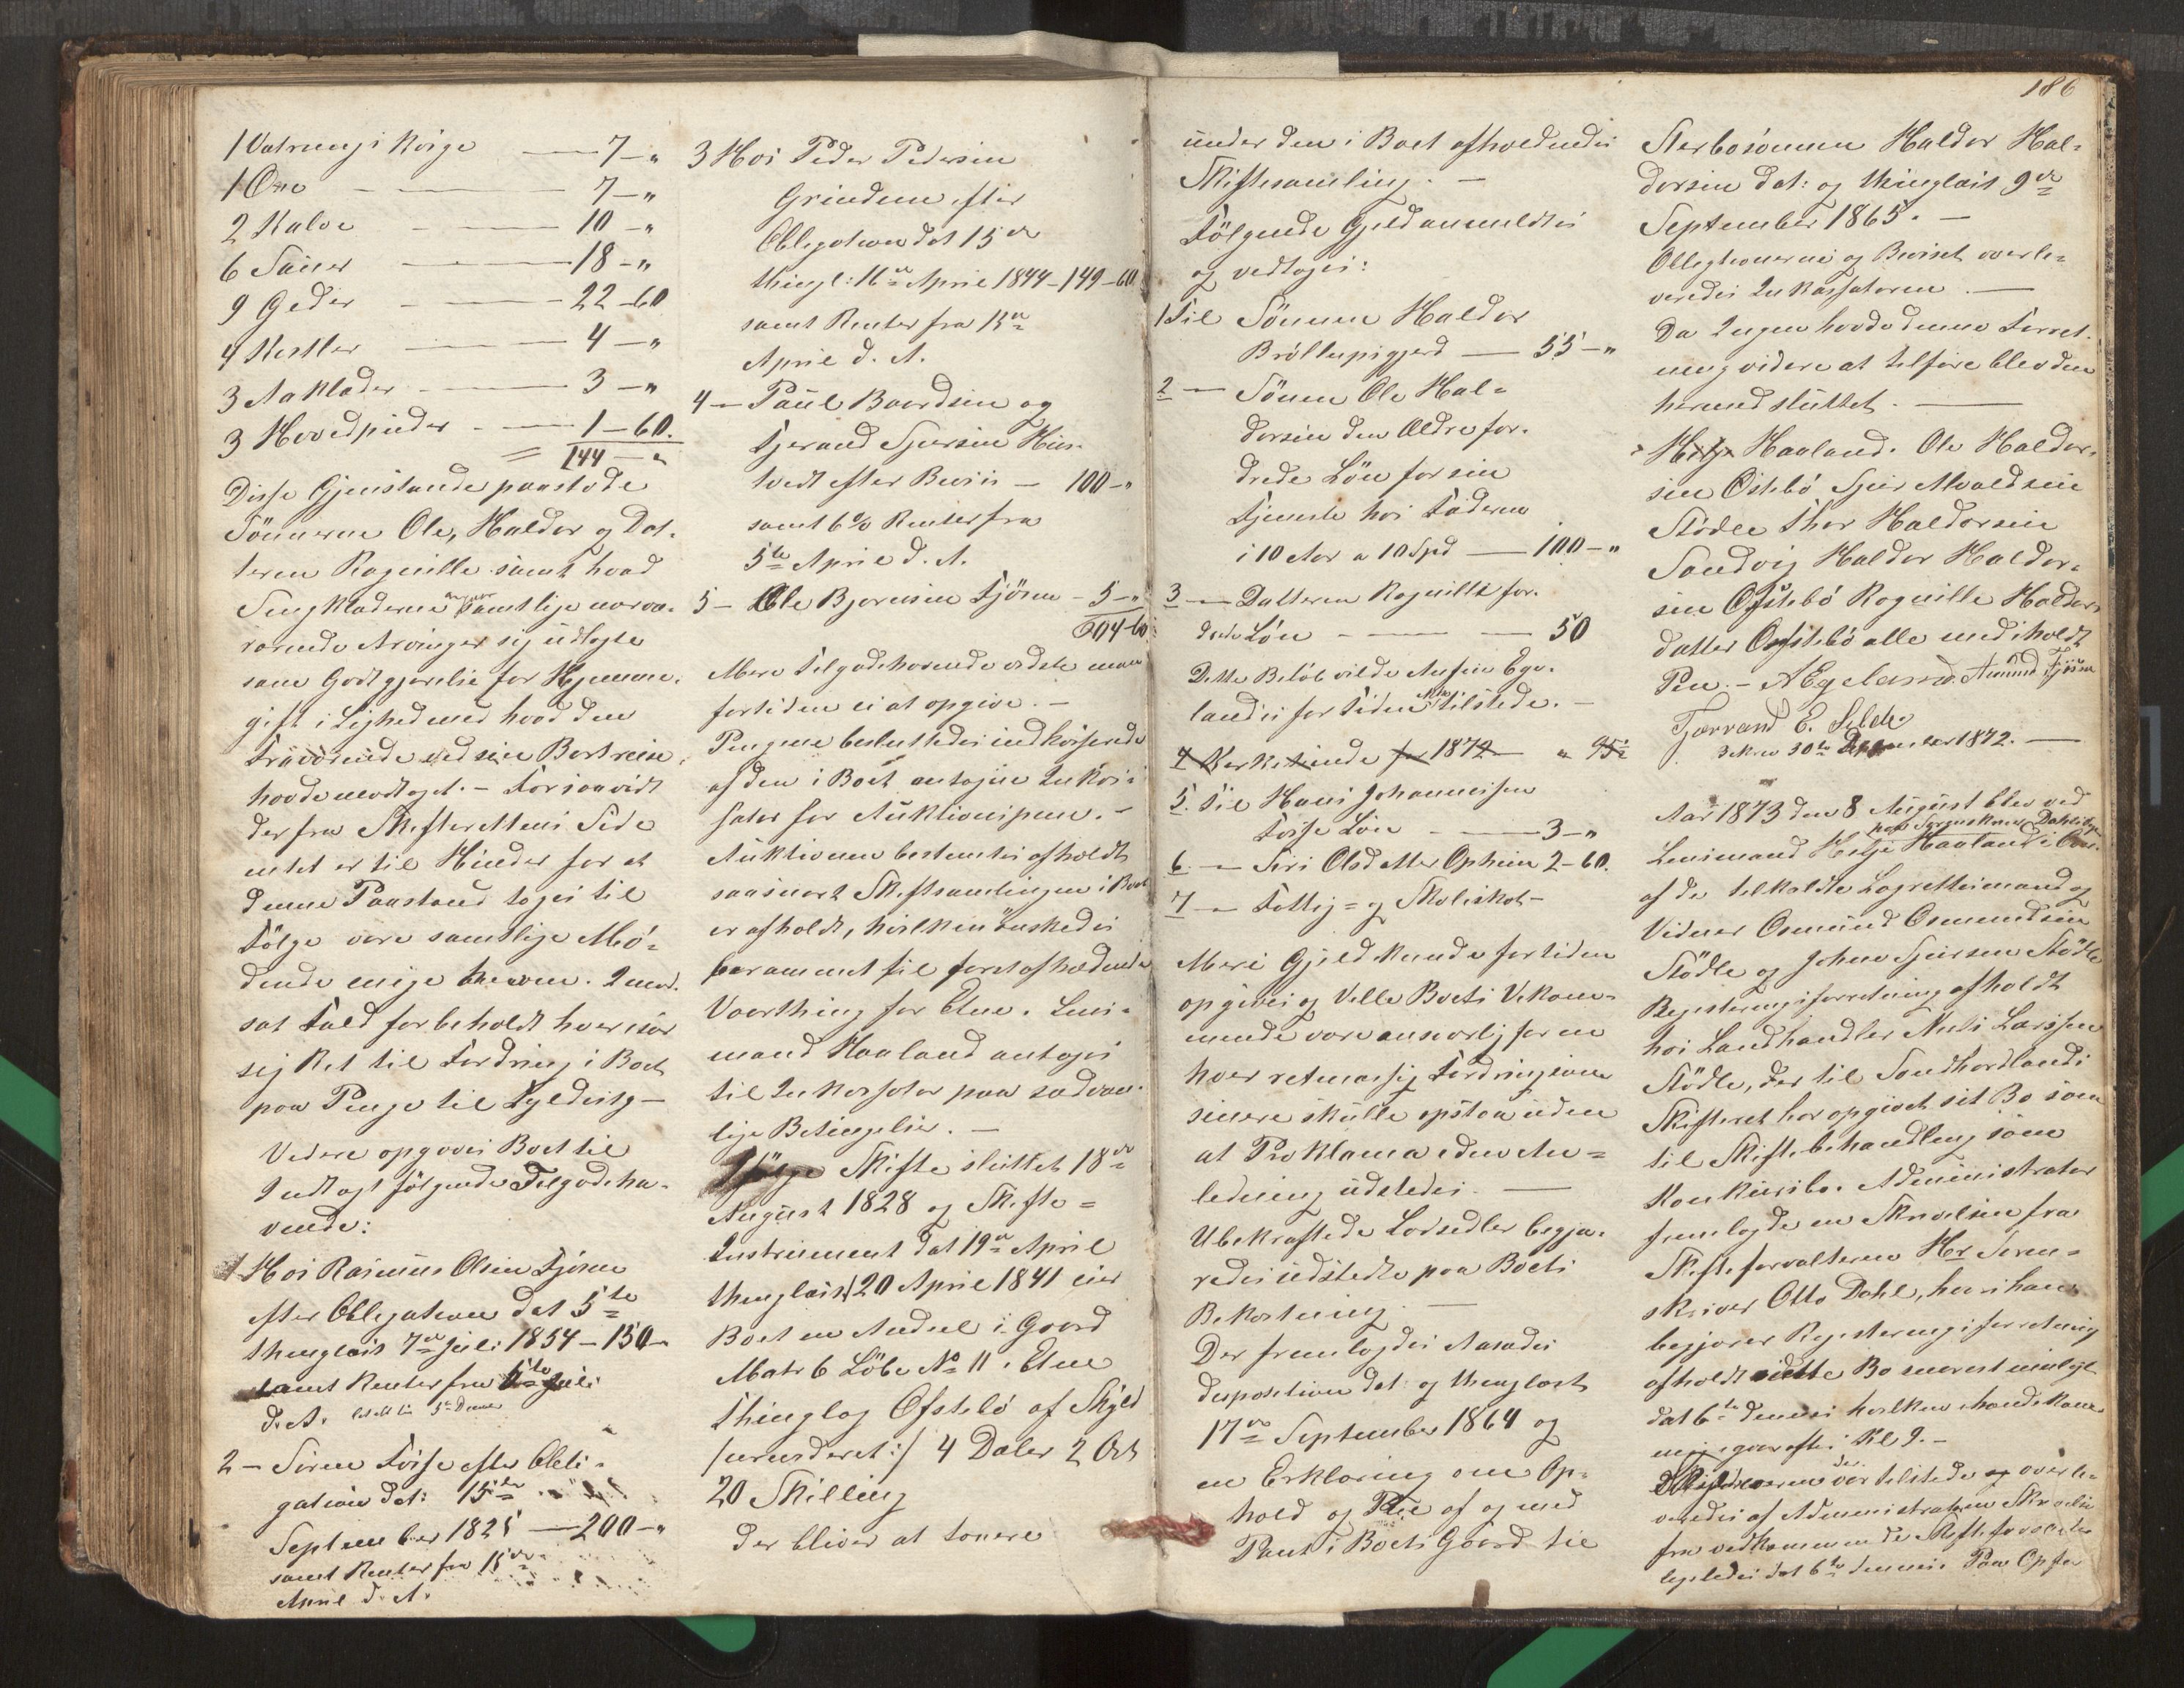 1 Vatrung i Kvige — 7 – "
1 Oxe — 7 – "
2 Kalve — 10 – "
6 Sauer — 18 – "
9 Geder — 22 – 60
4 — 4 – "
3 Aaklæder — 3 – "
3 Hovedpuder — 1 – 60.
= 144 – "
Disse Gjenstande paastode
Sönnerne Ole, Haldor og Dat-
teren Ragnille samt hvad
Sengklæderne samtlige nærvæ-
rende Arvinger sig udlagte
som Godtgjørelse for Hjemme-
gift i Lighed med hvad den
Fraværende ved sin Bortreise
havde modtaget. – Forsaavidt
der fra Skifterettens Side
intet er til Hinder for at
denne Paastand toges til
Følge vare samtlige Mö-
dende enige herom. I mod-
sat Fald forbeholdt hver især
sig Ret til Fordring i Boet
paa Penge til Fyldest –
Videre opgaves Boet til
Indtægt fölgende Tilgodeha-
vende:
1 Hos Rasmus Olsen Fjösne
efter Obligation dat 5te
thinglæst 7de Juli 1854 – 150 –
samt Renter fra 5te Juli
d. A.
2 – Sören Tøsse efter Obli-
gation dat: 15de
September 1825 — 200 – "
samt Renter fra 15de
April d. A.
3 Hos Peder Pedersen
Grinden efter
Obligation dat 15de
thingl: 16de April 1844 – 149 – 60
samt Renter fra 15de
April d. A.
4 – Paul Baardsen og
Tjerand Sjursen Hus-
tvedt efter Bevis — 100 – "
samt 6% Renter fra
5te April d. A.
5 – Ole Bjørnsen Fjösne – 5 – "
604 – 60
Mere Tilgodehavende vidste man
fortiden ei at opgive. –
Pengene besluttedes indkasserede
af den i Boet antagne Inkas-
sator for Auktionspenge. –
Auktionen bestemtes afholdt
saasnart Skiftesamlingen i Boet
er afholdt, hvilken önskedes
berammet til førstafholdende
Vaarthing for Etne. Lens-
mand Haaland antoges
til Inkassator paa sædvan-
lige Betingelser. –
Ifölge Skifte sluttet 18de
August 1828 og Skifte=
Instrument dat 19de April
thinglæst 20 April 1841 eier
Boet en Andeel i Gaard
Matr 6 Löbe No 11 i Etne
Thinglag Ofstebö af Skyld
/urevideret:/ 4 Daler 2 Ort
20 Skilling
der bliver at taxere
186
under den i Boet afholdendes
Skiftesamling. –
Fölgende Gjeld anmeldtes
og vedtoges:
1 Til Sönnen Haldor
Bröllupsgjerd — 55 – "
2 — Sönen Ole Hal=
dorsen den Ældre for-
drede Lön for sin
Tjeneste hos Faderen
i 10 Aar a 10 Spd — 100 – "
3 — Datteren Ragnille for-
drede Lön — 50
Dette Belöb vilde Anfin Ege-
land ei for Tiden tilstede. –
4 Værketiende for 1872 – " 95
5. Til Hans Johannesen
Tøsse Lön — 3 – "
6. — Siri Olsdatter Opheim 2 – 60.
7 — Fattig= og Skoleskat –
Mere Gjeld kunde fortiden
opgives og vilde Boets Vekom-
mende være ansvarlig for en
hver retmæssig Fordring som
senere skulle opstaa uden
at Proklama i den An=
ledning udstedes. —
Ubekræftede Lodsedler begjæ-
redes udstedte paa Boets
Bekostning. —
Der fremlagdes Aasædes
desposition dat og thinglæst
17de September 1864 og
en Erklæring om Op-
hold og Pleie af og med
Pant i Boets Gaard til
Sterbosönnen Haldor Hal-
dorsen dat: og thinglæst 9de
September 1865. –
Obligtionerne og Beviset overle-
veredes Inkassatoren. —
Da Ingen havde denne Forret-
ning videre at tilföre blev den
hermed sluttet. —
Helje Haaland. Ole Haldor-
sen Östebö Sjur Alvaldsen
Stödle Thor Haldorsen
Sandvig Haldor Haldor-
sen Ofstebö Ragnille Haldors-
datter Ofstebö alle med iholdt
Pen. – A Egeland. Amund Fjösne
Tjærrand E. Silde.
30te September 1872. —
Aar 1873 den 8 August blev ved
Lensmand Helje Haaland i Etne
paa Sorenskriver Dahls
af de tilkaldte Lagrettesmænd og
Vidner Osmund Osmundsen
Stödle og Johan Sjursen Stödle
Registeringsforretning afholdt
hos Landhandler Nils Larsen
Stödle, der til Sondhordlands
Skifteret har opgivet sit Bo som
til Skiftebehandling som
Konkursbo. Administrator
fremlagde en Skrivelse fra
Skifteforvalteren Hr Soren-
skriver Otto Dahl, hvori han
begjærer Registeringsforretning
afholdt i dette Bo snarest muligt
dat 6te dennes hvilken ihændekom
mig igaar aftes Kl 9. –
var tilstede og overle-
veredes af Administratoren Skrivelse
fra vedkommende Skifteforvalter
ligeledes dat 6te dennes. Paa Opfor